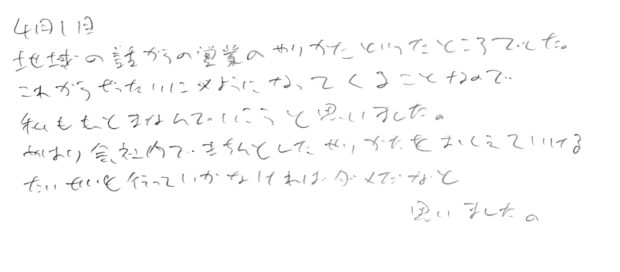 4回1回
地域の話からの営業のやりかたといったところでした。
これからぜったいに必ようになってくることなので
私ももっとまなんでいこうと思いました。
やはり会社内できちんとしたやりかたをおしえていける
たいせいを行っていかなければダメだなと
思いました。